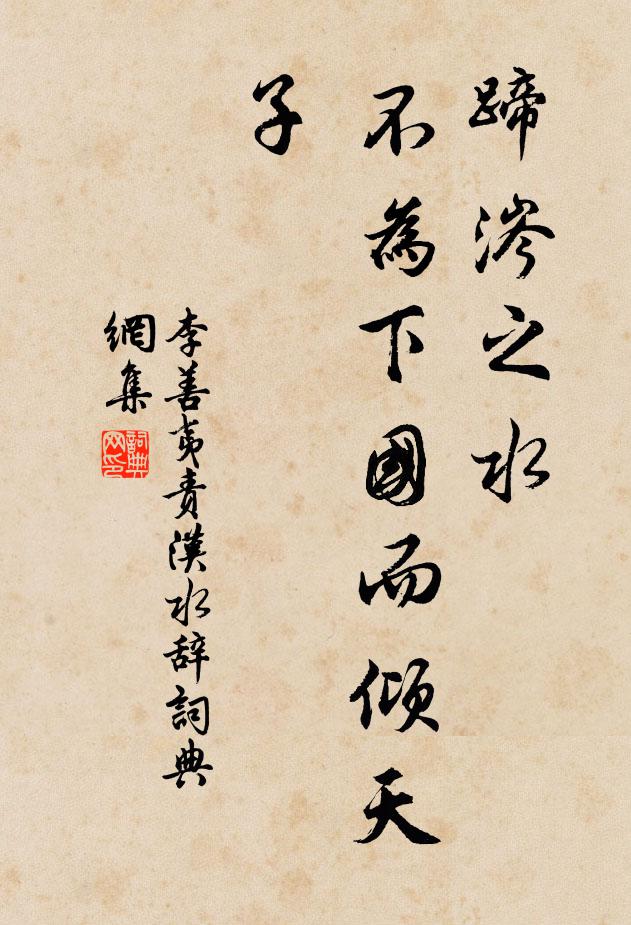 蹄涔之水
不為下國而傾天
子
李善夷責漢水辞詞典
網集
詞典
网印